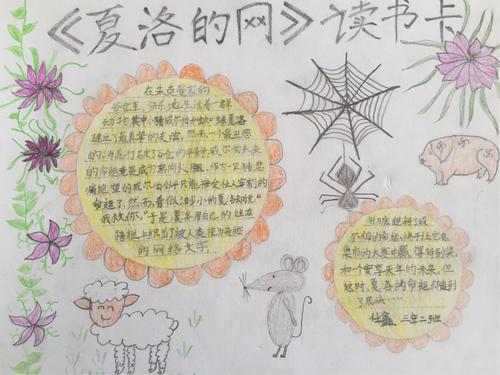 《夏洛的网》读书卡
在朱克曼家的
谷仓里,快乐地生活着一群
动物,其中小猪威尔伯和蜘蛛夏洛
建立了最真挚的友谊,然而,一个最丑恶
的消息打破了谷仓的平静:威尔伯未来
的命运竟是成为熏肉火腿,作为一只猪,悲
痛绝望的威尔伯似乎只能接受任人宰割的
命运了,然而,看似渺小的夏洛却说:"
我救你,"于是,夏洛用自己的丝在
猪栏上织出了被人类视为奇迹
的网络文字
彻底逆转了威
尔伯的命运,终于让它在
集市的大赛中赢得特别奖,
和一个安享天年的未来,但
这时,夏洛的命运却
了尽头……
三年二班